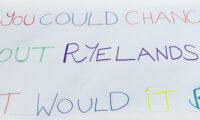 YOU COULD CHANC
OUT RYELANDS
T WOULD IT